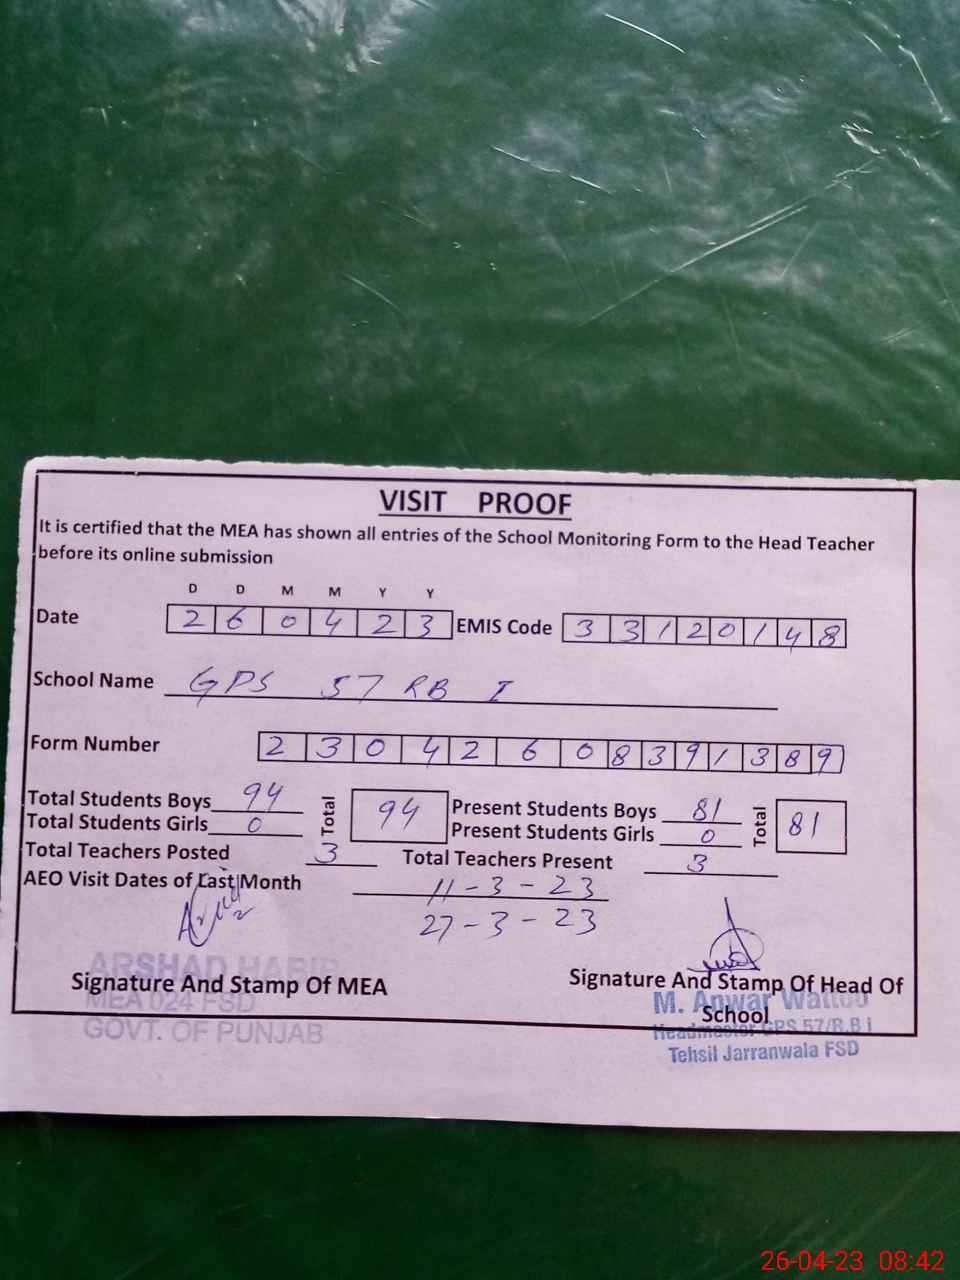 VISIT PROOF
It is certified that the MEA has shown all entries of the School Monitoring Form to the Head Teacher
before its online submission
D D M M Y Y
Date 2 6 0 4 2 3 EMIS Code 3 3 1 2 0 1 4 8
School Name GPS 57 RB I
Form Number 2 3 0 4 2 6 0 8 3 9 1 3 8 9
Total Students Boys 94 Total 94 Present Students Boys 81 Total 81
Total Students Girls 0 Present Students Girls 0
Total Teachers Posted 3 Total Teachers Present 3
AEO Visit Dates of Last Month 11-3-23
27-3-23
ARSHAD HABIB
Signature And Stamp Of MEA Signature And Stamp Of Head Of
School
MEA 024 FSD M. Anwar Wattoo
GOVT. OF PUNJAB Headmaster GPS 57/R.B I
Tehsil Jarranwala FSD
26-04-23 08:42